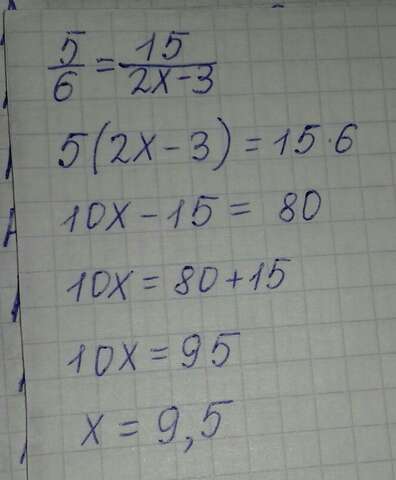 5/6 = 15/(2x-3)
5(2x-3) = 15·6
10x-15 = 80
10x = 80+15
10x = 95
x = 9,5